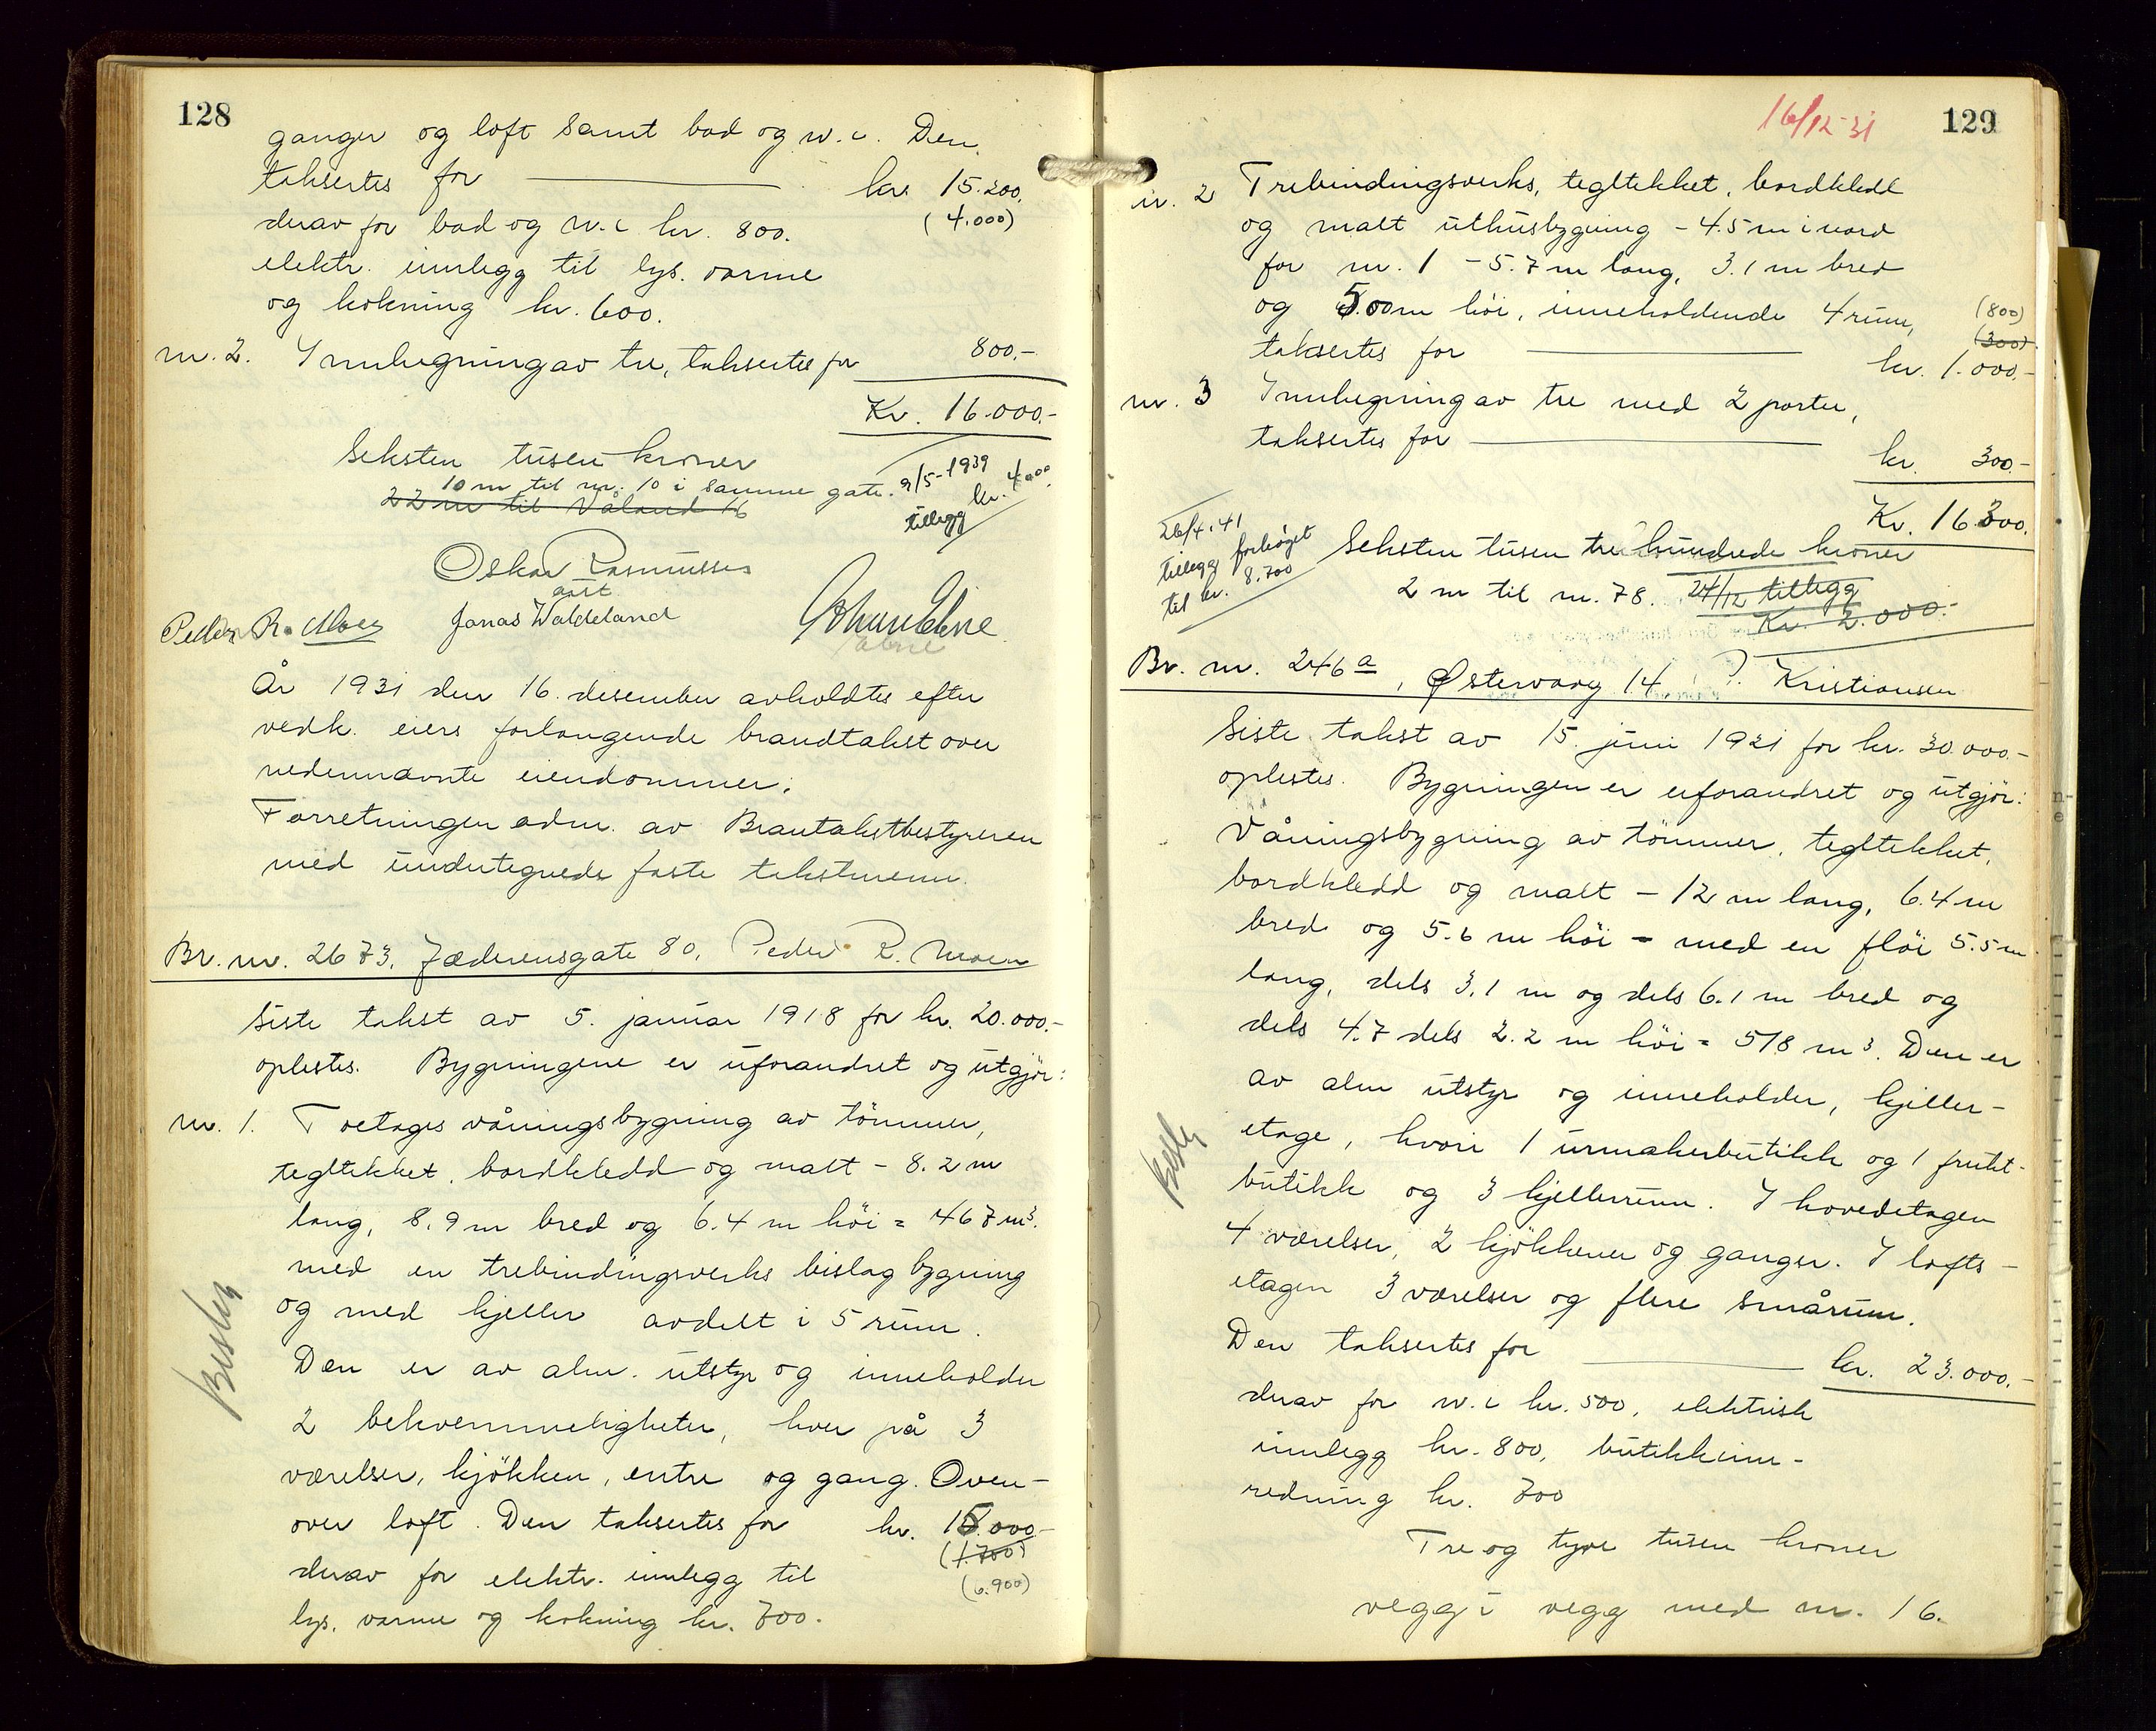 128
ganger og loft samt bad og w.c. Den
taksertes for kr. 15.200.
(4.000)
derav for bad og w.c kr. 800.
elektr. innlegg til lys. varme
og kokning kr. 600.
nr. 2. Innhegning av tre, taksertes for 800.-
Kr. 16.000.-
Seksten tusen kroner
10 m til nr. 10 i samme gate. 9/5-1939
22 m til Våland 16
tillegg kr. 4.000.
Oskar Rasmussen
Peder R. Moen Jonas Waldeland
År 1931 den 16. desember avholdtes efter
vedk. eiers forlangende brandtakst over
nedennævnte eiendommer:
Forretningen adm. av Brantakstbestyreren
med undertegnede faste takstmenn.
Br. nr. 2673, Jæderensgate 80, Peder R. Moen
Siste takst av 5. januar 1918 for kr. 20.000.-
oplestes. Bygningene er uforandret og utgjør:
nr. 1. Toetages våningsbygning av tömmer,
tegltekket, bordkledd og malt - 8.2 m
lang, 8.9 m bred og 6.4 m höi = 467 m³.
med en trebindingsverks bislag bygning
og med kjeller avdelt i 5 rum.
Den er av alm. utstyr og inneholder
2 bekvemmeligheter, hver på 3
værelser, kjökken, entre og gang. Oven-
over loft. Den taksertes for kr. 15.000.-
(1.700)
(6.900)
derav for elektr. innlegg til
lys, varme og kokning kr. 700.
16/12-31
129
nr. 2 Trebindingsverks, tegltekket, bordkledt
og malt uthusbygning - 4.5 m i nord
for nr. 1 - 5.7 m lang, 3.1 m bred
og 5.00 m höi, inneholdende 4 rum,
(800)
(300)
taksertes for kr. 1.000.-
nr. 3 Innhegning av tre med 2 porter,
taksertes for kr. 300.-
Kr. 16.300.
26/4.41
tillegg forhøyet
til kr. 8.700
Seksten tusen tre hundrede kroner
2 m til nr. 78. 24/12 tillegg
Kr. 2.000.-
Br. nr. 246 a, Østervaag 14, P. Kristiansen
Siste takst av 15. juni 1921 for kr. 30.000.-
oplestes. Bygningen er uforandret og utgjör:
Våningsbygning av tömmer, tegltekket,
bordkledd og malt - 12 m lang, 6.4 m
bred og 5.6 m höi - med en flöi 5.5 m
lang, dels 3.1 m og dels 6.1 m bred og
dels 4.7 dels 2.2 m höi = 578 m³. Den er
av alm utstyr og inneholder, kjeller-
etage, hvori 1 urmakerbutikk og 1 frukt-
butikk og 3 kjellerrum. I hovedetagen
4 værelser, 2 kjökkener og ganger. I lofts-
etagen 3 værelser og flere smårum.
Den taksertes for kr. 23.000.-
derav for w.c kr. 500, elektrisk
innlegg kr. 800, butikkinn-
redning kr. 700
Tre og tyve tusen kroner
vegg i vegg med nr. 16.